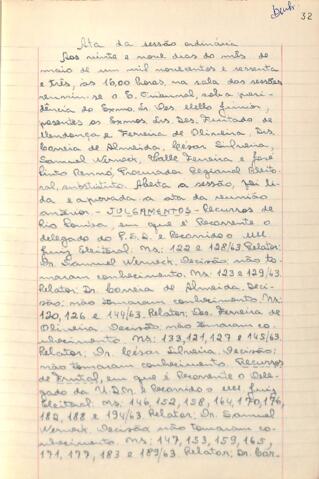 32
Ata da sessão ordinária
Aos vinte e nove dias do mês de
maio de um mil novecentos e sessenta
e três, às 16,00 horas, na sala das sessões
reuniu-se o E. Tribunal, sob a presi-
dência do Exmo. Sr. Des. Mello Júnior,
presentes os Exmos. Srs. Des. Furtado de
Mendonça e Ferreira de Oliveira, Drs.
Correia de Almeida, César Silveira,
Samuel Werneck, Valle Ferreira e José
Pinto Renno, Procurador Regional Eleito-
ral, substituto. Aberta a sessão, foi li-
da e aprovada a ata da reunião
anterior - JULGAMENTOS - Recursos de
Rio Pomba, em que é Recorrente o
delegado do P.S.D. e Recorrido o MM
Juiz Eleitoral. Ns: 122 e 128/63 Relator:
Dr. Samuel Werneck. Decisão: não to-
maram conhecimento. Ns: 123 e 129/63.
Relator: Dr. Correia de Almeida. Deci-
são: não tomaram conhecimento. Ns:
120, 126 e 144/63. Relator: Des. Ferreira de
Oliveira Decisão: não tomaram co-
nhecimento. Ns: 133, 121, 127 e 145/63.
Relator: Dr. César Silveira. Decisão:
não tomaram conhecimento. Recursos
de Frutal, em que é Recorrente o Dele-
gado da U.D.N. e Recorrido o MM Juiz
Eleitoral. Ns: 146, 152, 158, 164, 170, 176,
182, 188 e 194/63. Relator: Dr. Samuel
Werneck. Decisão não tomaram co-
nhecimento. Ns: 147, 153, 159, 165,
171, 177, 183 e 189/63. Relator: Dr. Cor-